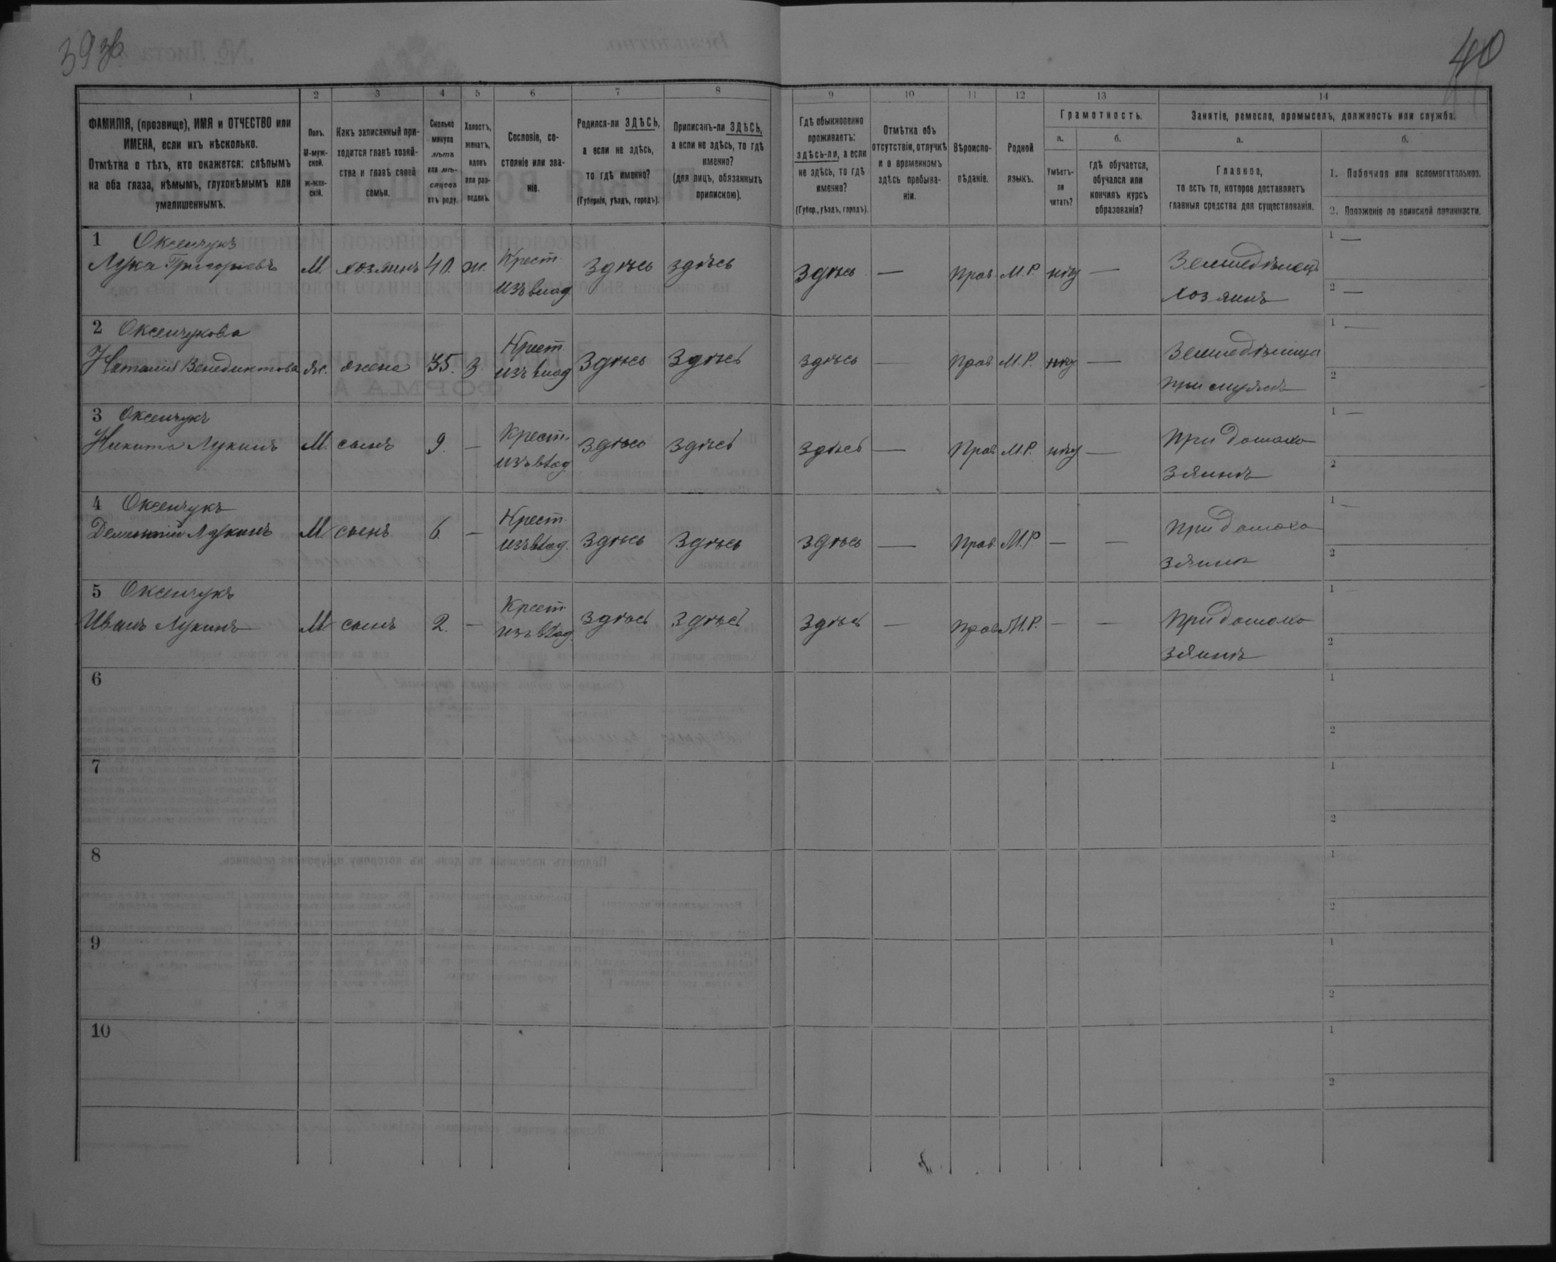 39 об
40
1 2 3 4 5 6 7 8 9 10 11 12 13 14
ФАМИЛІЯ, (прозвище), ИМЯ и ОТЧЕСТВО или
ИМЕНА, если ихъ нѣсколько.
Отмѣтка о тѣхъ, кто окажется: слѣпымъ
на оба глаза, нѣмымъ, глухонѣмымъ или
умалишеннымъ.
Полъ.
М-муж-
ской.
ж-жен-
скій.
Какъ записанный при-
ходится главѣ хозяй-
ства и главѣ своей
семьи.
Сколько
минуло
лѣтъ
или мѣ-
сяцевъ
отъ роду.
Холостъ,
женатъ,
вдовъ
или раз-
веденъ.
Сословіе, со-
стояніе или зва-
ніе.
Родился-ли ЗДѢСЬ,
а если не здѣсь,
то гдѣ именно?
(Губернія, уѣздъ, городъ).
Приписанъ-ли ЗДѢСЬ,
а если не здѣсь, то гдѣ
именно?
(для лицъ, обязанныхъ
припискою).
Гдѣ обыкновенно
проживаетъ:
здѣсь-ли, а если
не здѣсь, то гдѣ
именно?
(Губер., уѣздъ, городъ).
Отмѣтка объ
отсутствіи, отлучкѣ
и о временномъ
здѣсь пребыва-
ніи.
Вѣроиспо-
вѣданіе.
Родной
языкъ.
Грамотность.
а. б.
Умѣетъ-
ли
читать?
гдѣ обучается,
обучался или
кончилъ курсъ
образованія?
Занятіе, ремесло, промыселъ, должность или служба.
а. б.
Главное,
то есть то, которое доставляетъ
главныя средства для существованія.
1. Побочное или вспомогательное.
2. Положеніе по воинской повинности.
1 Оксенчукъ
Лука Григорьевъ М. хозяинъ 40. ж. Крест. изъ влад. здѣсь здѣсь здѣсь — Прав. М.Р. нѣт — Земледѣлецъ хозяинъ
1 —
2 —
2 Оксенчукова
Наталия Венедиктова ж. жена 35. з Крест. изъ влад. здѣсь здѣсь здѣсь — Прав М.Р. нѣт — Земледѣлица при мужѣ
1 —
2
3 Оксенчукъ
Никита Лукинъ М. сынъ 9. — Крест. изъ влад. здѣсь здѣсь здѣсь — Прав М.Р. нѣт — При домохозяинѣ
1 —
2
4 Оксенчукъ
Лукинъ М сынъ 6 — Крест. изъ влад. здѣсь здѣсь здѣсь — Прав М.Р — — При домохозяинѣ
1 —
2
5 Оксенчукъ
Иванъ Лукинъ М сынъ 2. — Крест. изъ влад. здѣсь здѣсь здѣсь — Прав М.Р. — — При домохозяинѣ
1
2
6
1
2
7
1
2
8
1
2
9
1
2
10
1
2